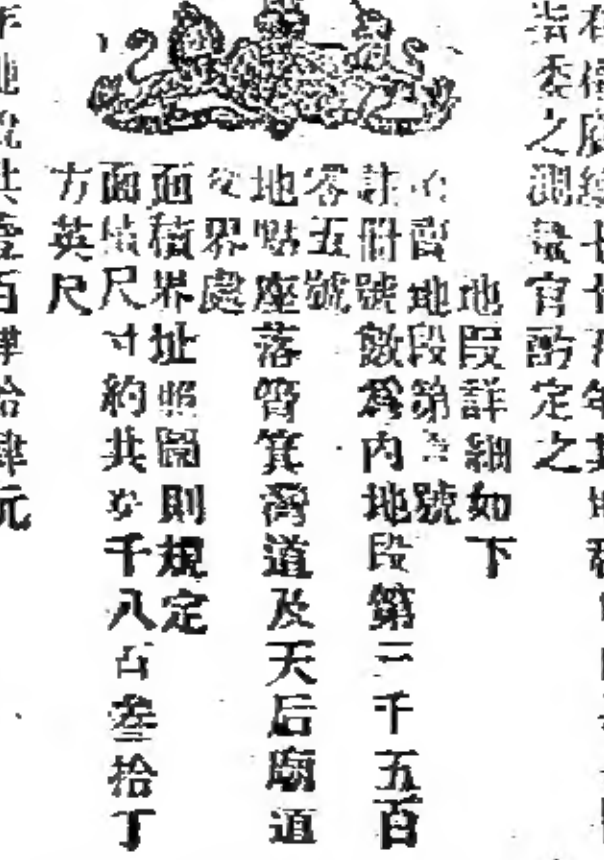 指委之測量官酌定之
地段詳細如下
賣地段第號
註冊號數為內地段第二千五百
零五號
地點座落筲箕灣道及天后廟道
交界處
面積界址照圖則規定
面積尺寸約共千八百叁拾丁
方英尺
年地稅共壹百肆拾肆元